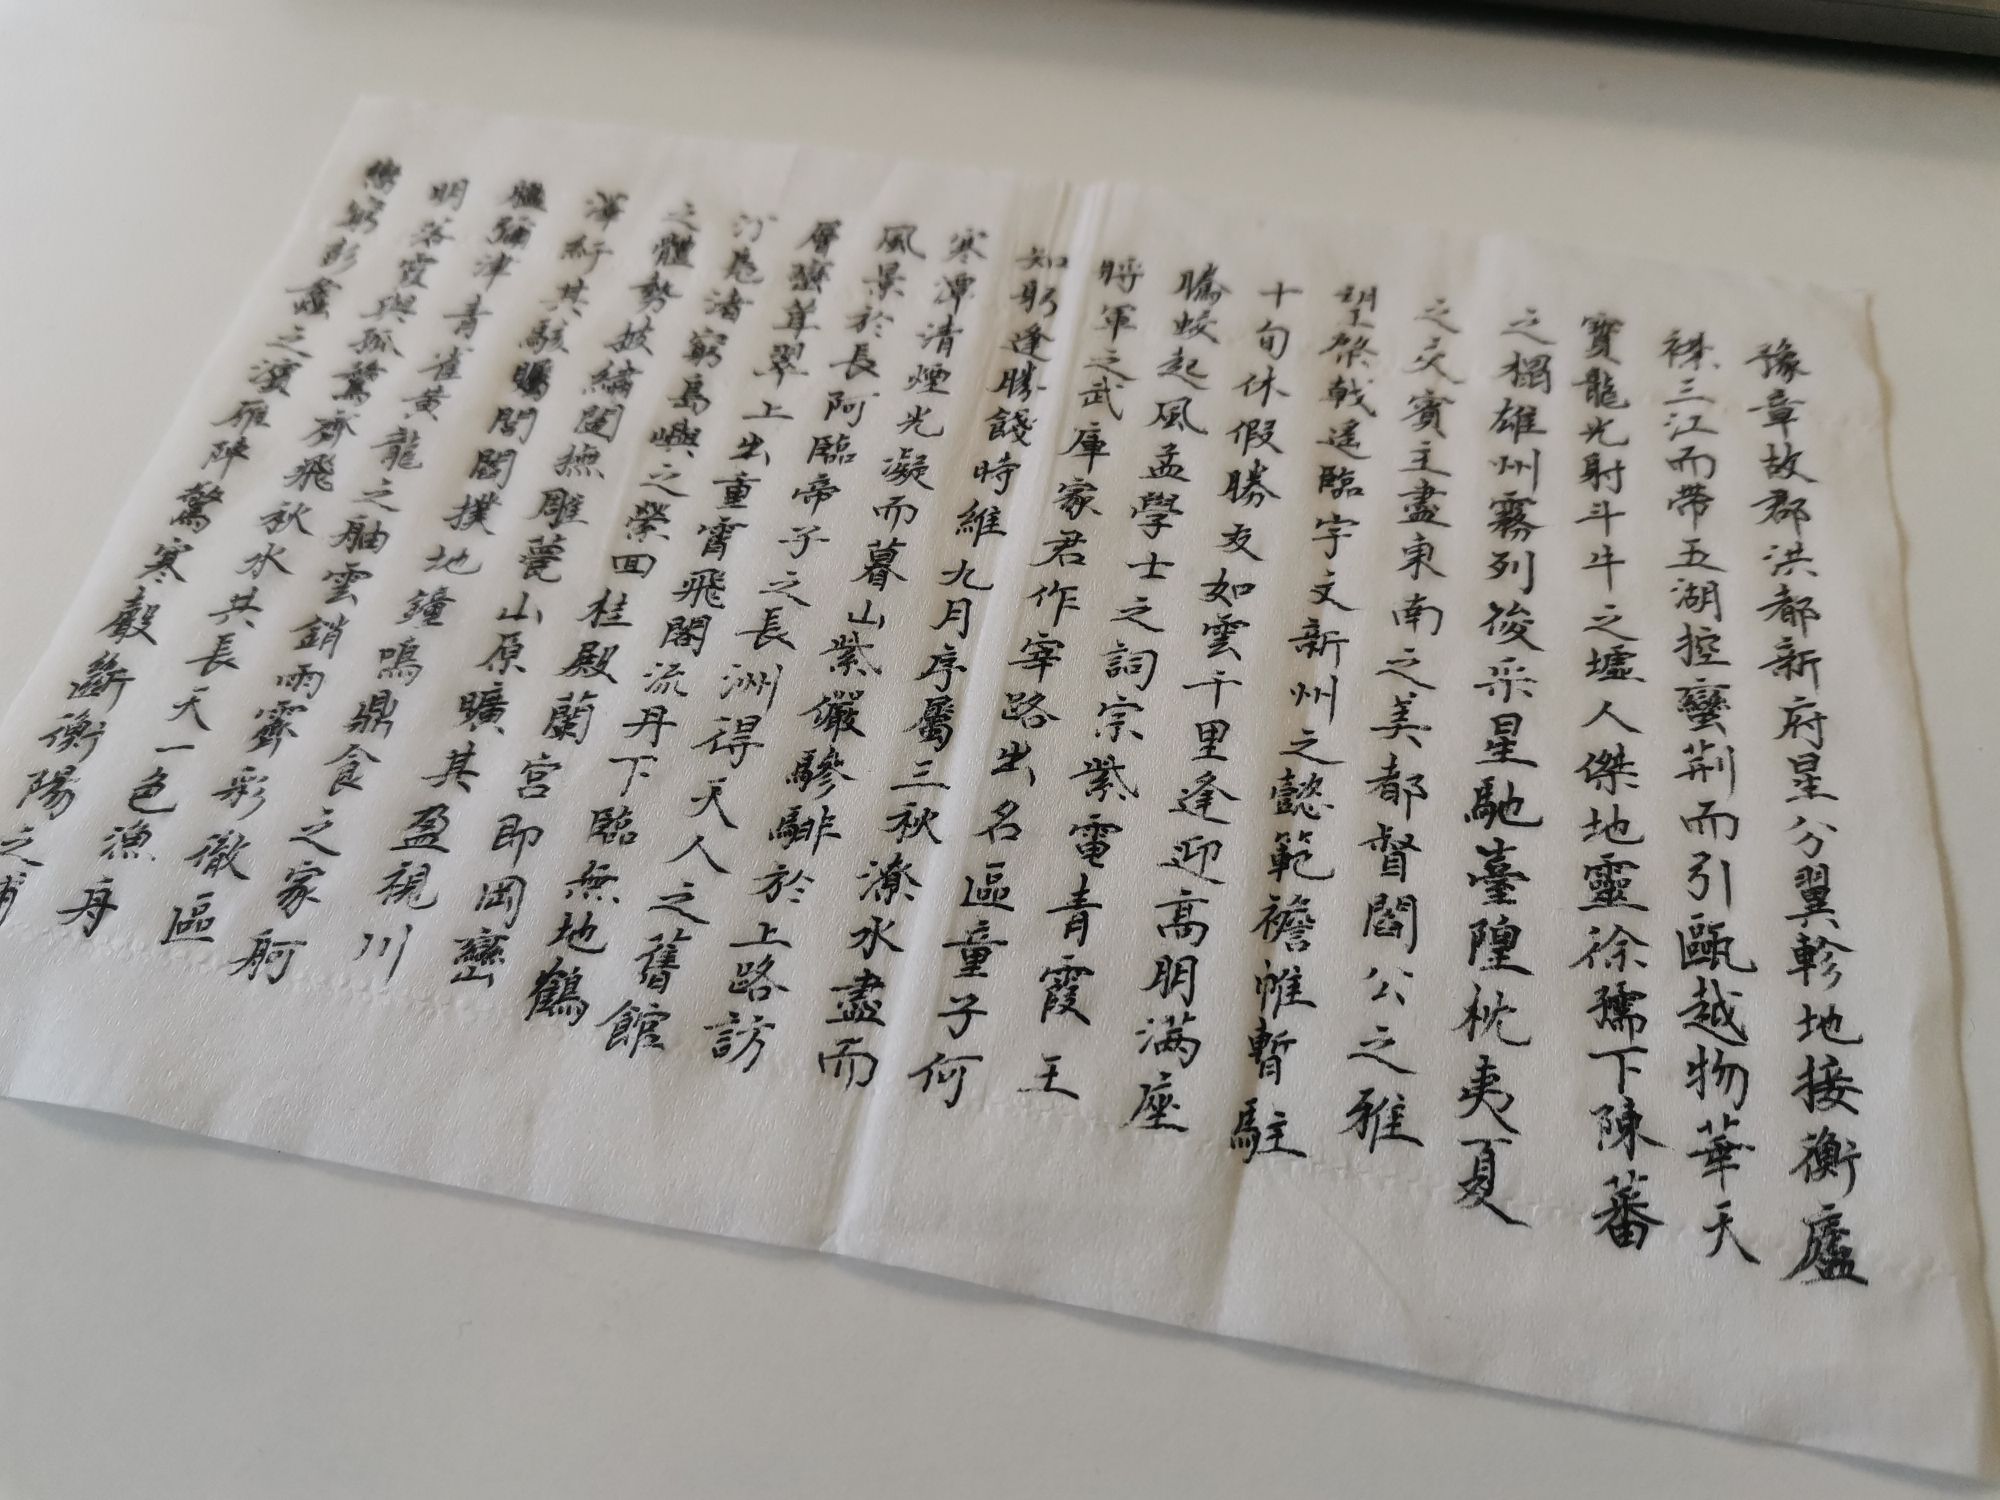 豫章故郡洪都新府星分翼軫地接衡廬
襟三江而帶五湖控蠻荊而引甌越物華天
寶龍光射斗牛之墟人傑地靈徐孺下陳蕃
之榻雄州霧列俊采星馳臺隍枕夷夏
之交賓主盡東南之美都督閻公之雅
望棨戟遙臨宇文新州之懿範襜帷暫駐
十旬休假勝友如雲千里逢迎高朋滿座
騰蛟起風孟學士之詞宗紫電青霞王
將軍之武庫家君作宰路出名區童子何
知躬逢勝餞時維九月序屬三秋潦水盡而
寒潭清煙光凝而暮山紫儼驂騑於上路訪
風景於長阿臨帝子之長洲得天人之舊館
層巒聳翠上出重霄飛閣流丹下臨無地鶴
汀鳧渚窮島嶼之縈回桂殿蘭宮即岡巒
之體勢披繡闥撫雕甍山原曠其盈視川
澤紆其駭矚閭閻撲地鐘鳴鼎食之家舸
艦彌津青雀黃龍之舳雲銷雨霽彩徹區
明落霞與孤鶩齊飛秋水共長天一色漁舟
響窮彭蠡之濱雁陣驚寒聲斷衡陽之浦